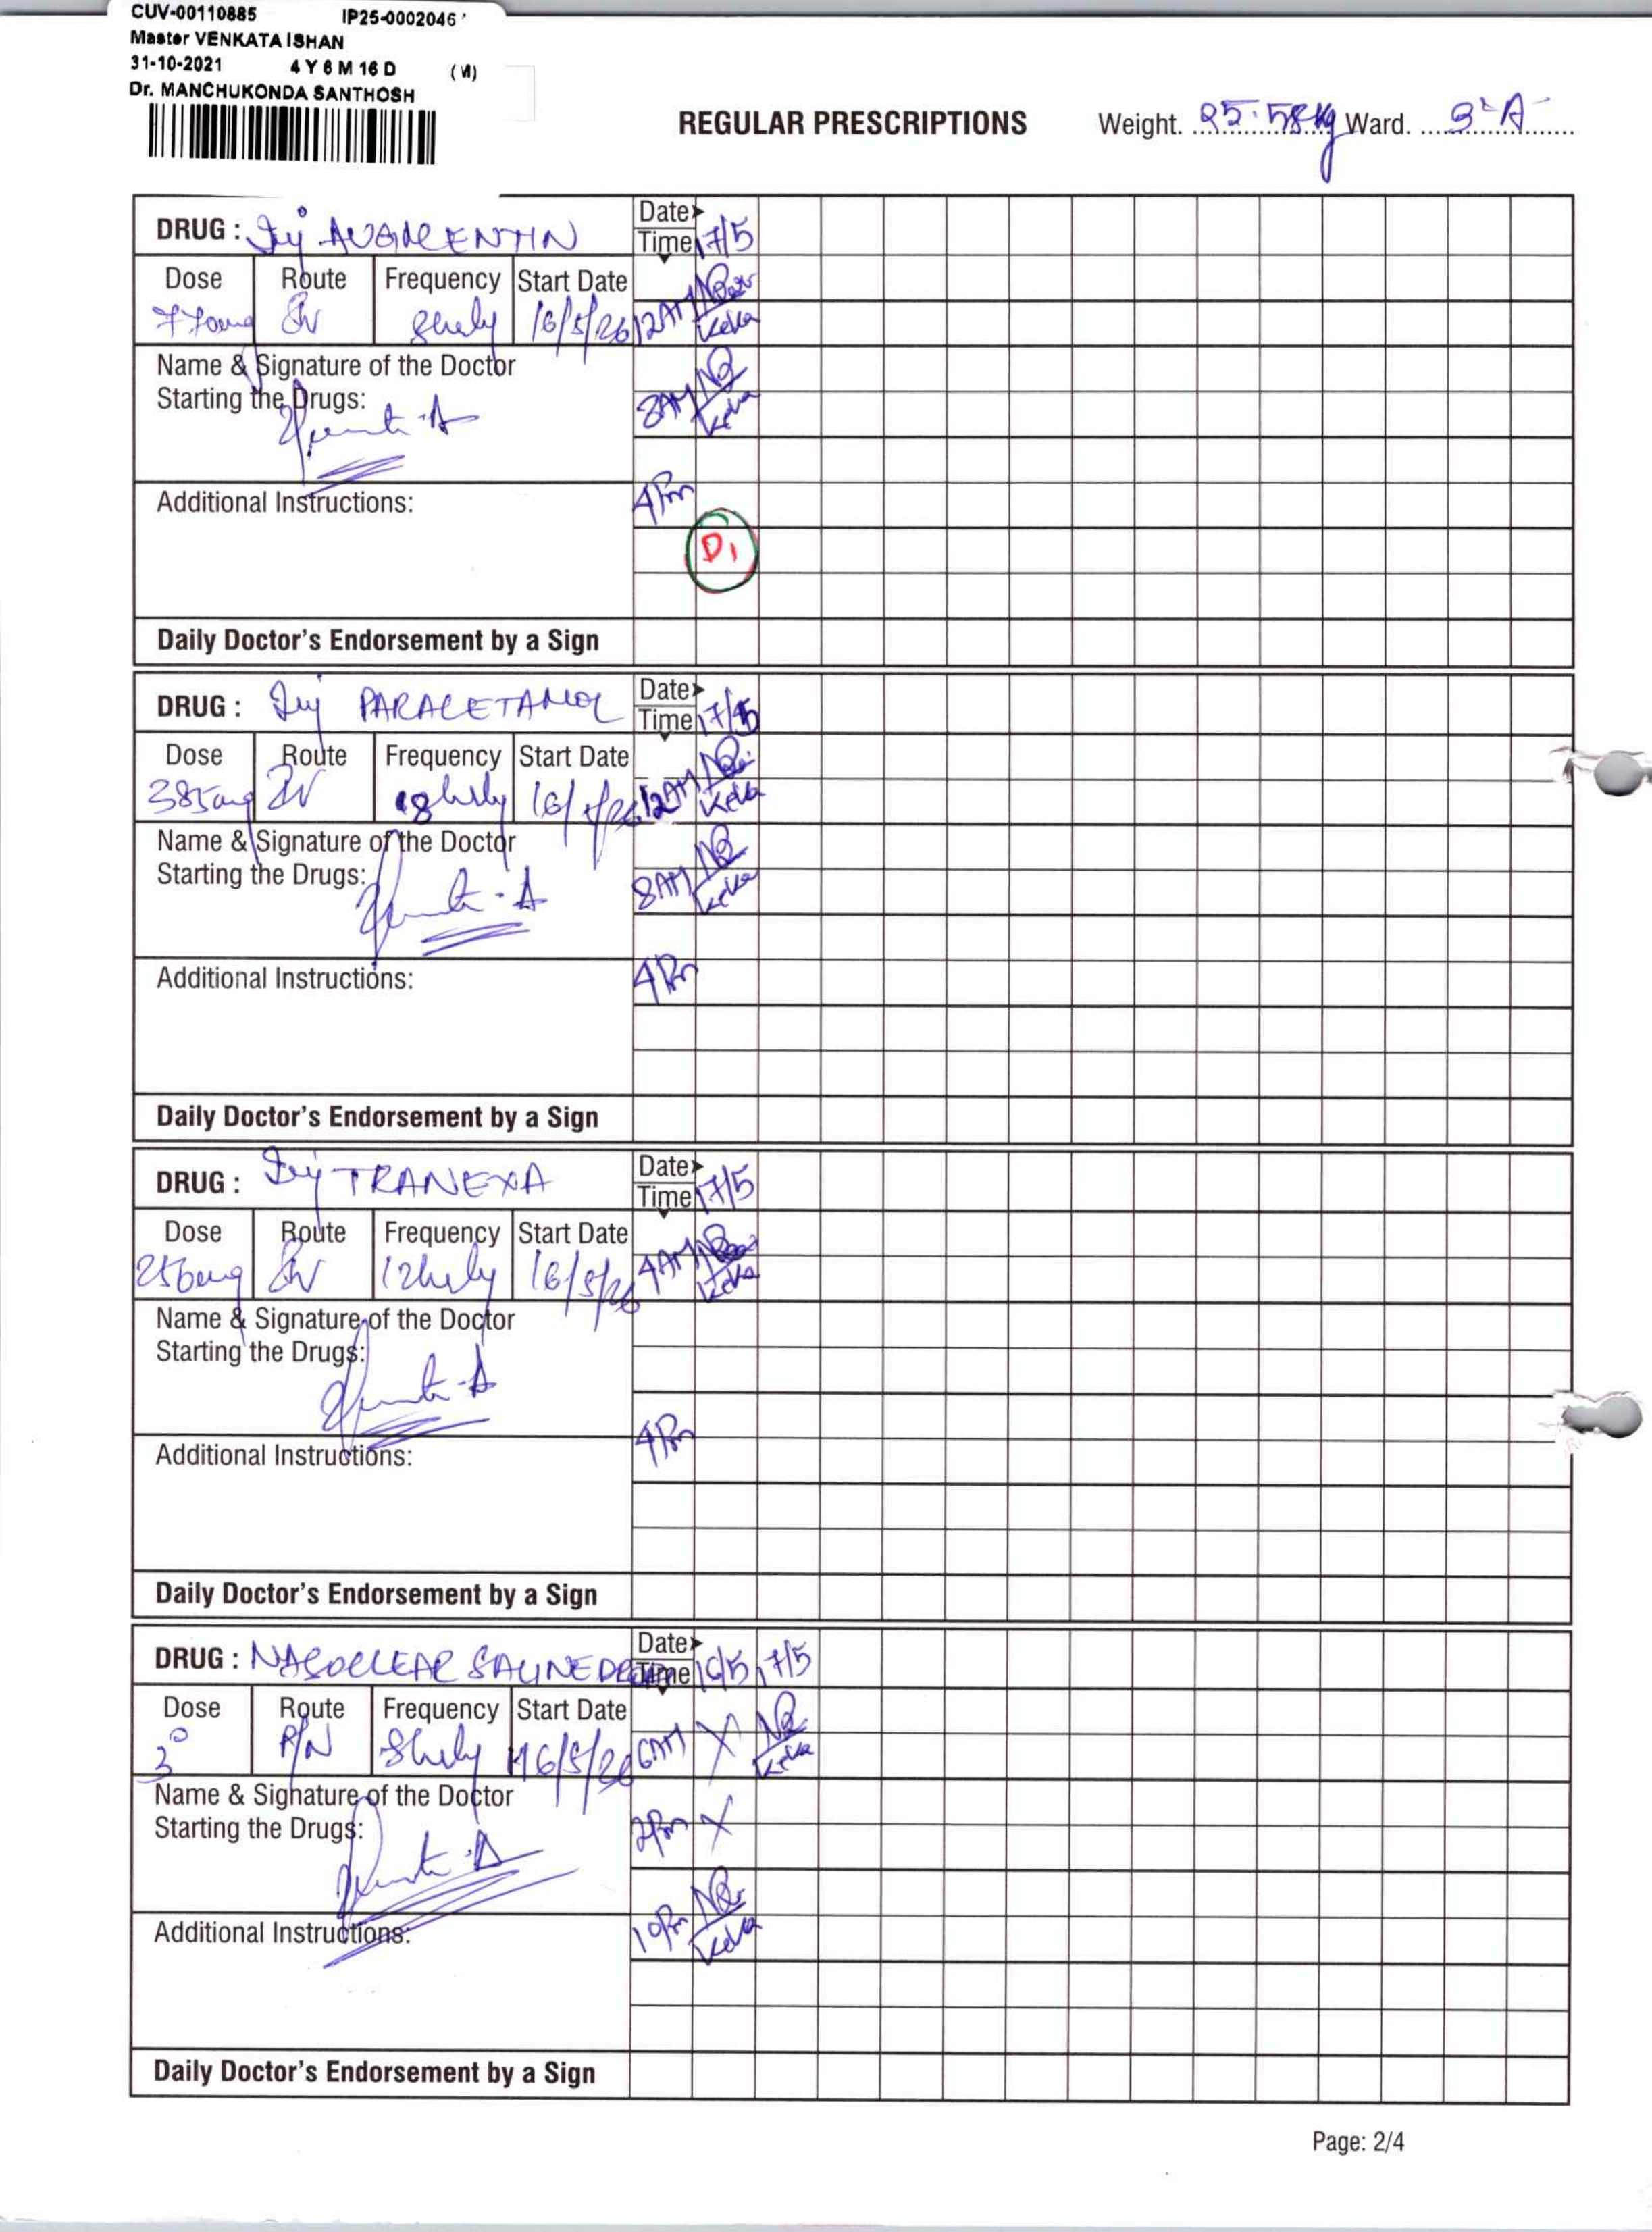 CUV-00110885 IP25-0002046
Master VENKATA ISHAN
31-10-2021 4 Y 6 M 16 D (M)
Dr. MANCHUKONDA SANTHOSH
REGULAR PRESCRIPTIONS Weight. 25.58kg Ward.
DRUG : Inj AUGMENTIN Date
Time 17/5
Dose Route Frequency Start Date
770mg IV 8hrly 16/5/26 12AM
Name & Signature of the Doctor
Starting the Drugs: 8AM
Additional Instructions: 4Pm
D1
Daily Doctor's Endorsement by a Sign
DRUG : Inj PARACETAMOL Date
Time 17/5
Dose Route Frequency Start Date
385mg IV 8hrly 16/5/26 12AM
Name & Signature of the Doctor
Starting the Drugs: 8AM
Additional Instructions: 4Pm
Daily Doctor's Endorsement by a Sign
DRUG : Inj TRANEXA Date
Time 17/5
Dose Route Frequency Start Date
256mg IV 12hrly 16/5/26 4AM
Name & Signature of the Doctor
Starting the Drugs:
Additional Instructions: 4Pm
Daily Doctor's Endorsement by a Sign
DRUG : NASOCLEAR SALINE Date
Time 16/5 17/5
Dose Route Frequency Start Date
P/N 8hrly 16/5/26 6AM X
Name & Signature of the Doctor
Starting the Drugs: 2Pm X
10Pm
Additional Instructions:
Daily Doctor's Endorsement by a Sign
Page: 2/4